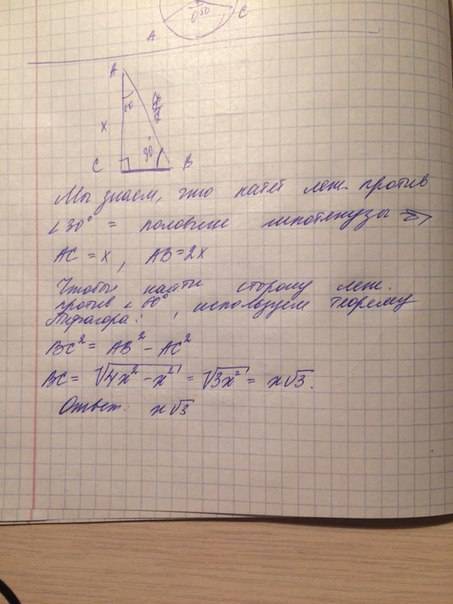 A C
A
60
x
C 30° B
Мы знаем, что катет леж. против
∠30° = половине гипотенузы ⇒
AC = x, AB = 2x
Чтобы найти сторону леж.
против ∠60°, используем теорему
Пифагора:
BC² = AB² - AC²
BC = √4x² - x² = √3x² = x√3.
Ответ: x√3